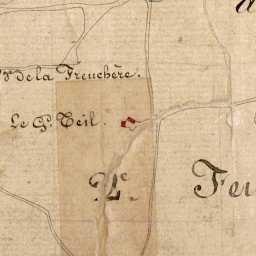 de la Freuchère.
Le Gd. Teil.
2e
Feu